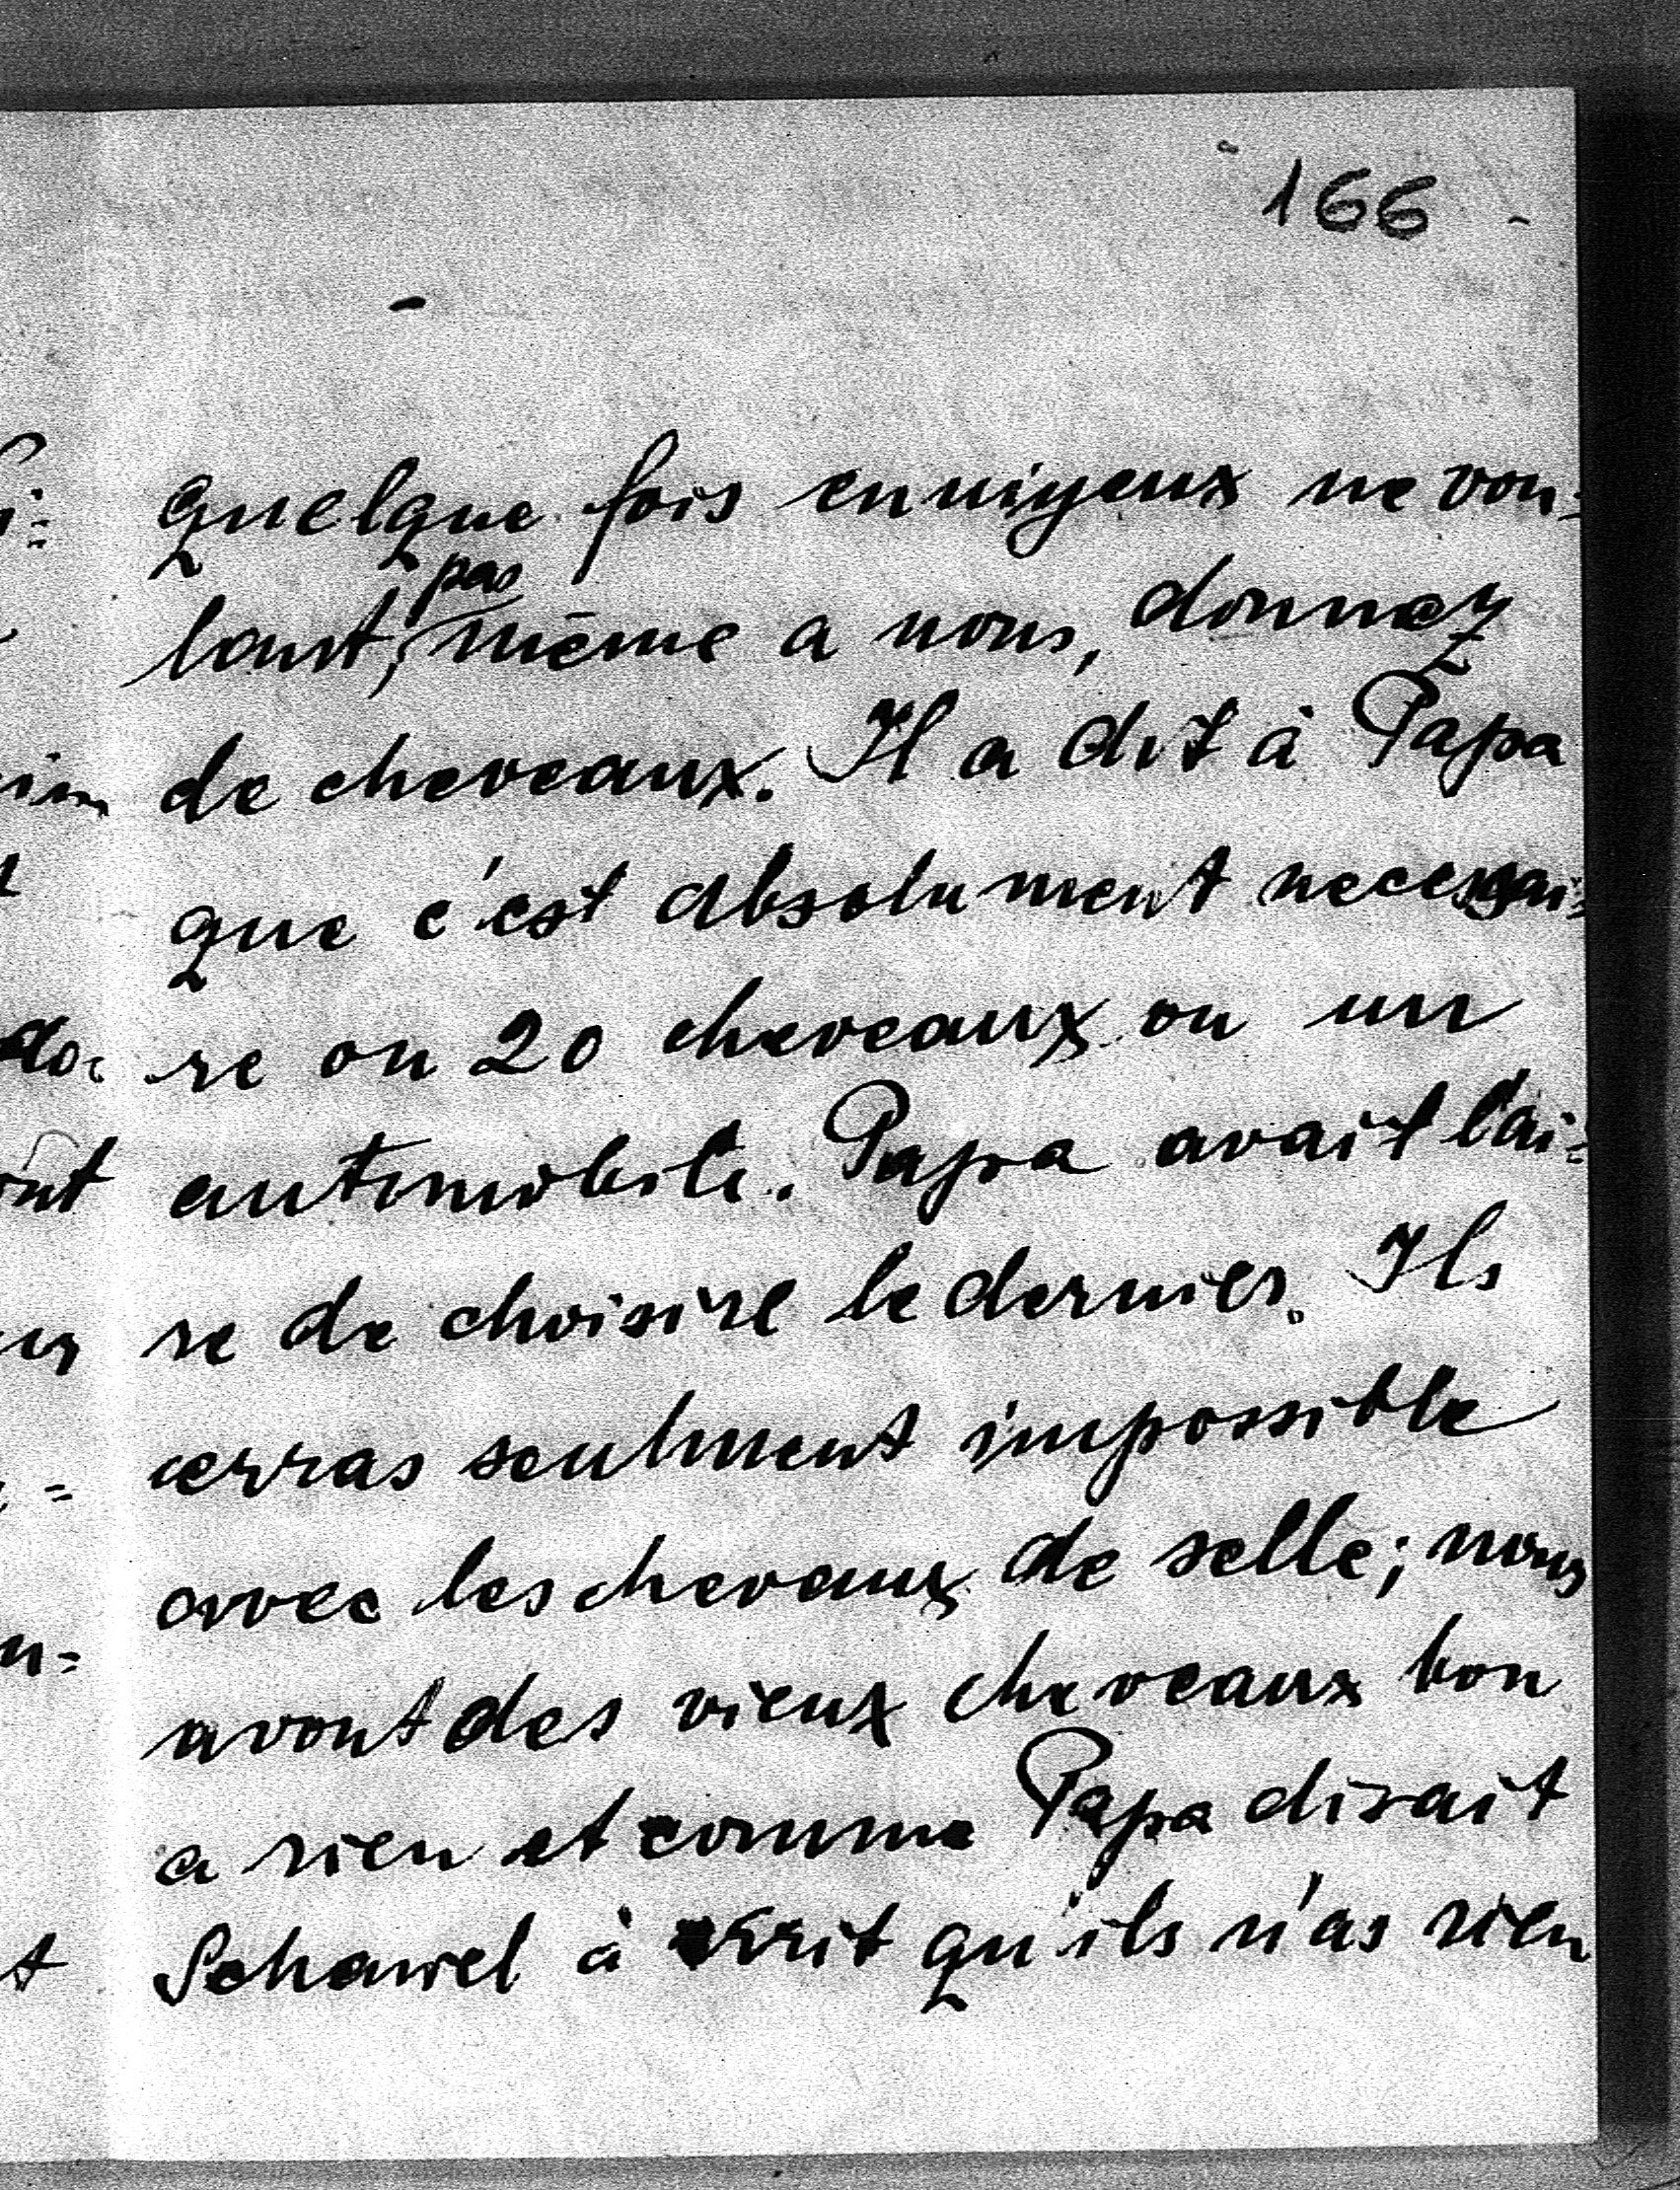 166
quelque fois ennuiyeux ne vou=
lant, pas même a nous, donnez
de cheveaux. Il a dit à Papa
que c'est absolument necessai=
re ou 20 cheveaux ou un
automobile. Papa avait l'ai=
re de choisire le dernier. Ils
serras seulment impossible
avec les chevaux de selle; nous
avont des vieux cheveaux bon
a rien et comme Papa disait
à qu'ils n'as rien